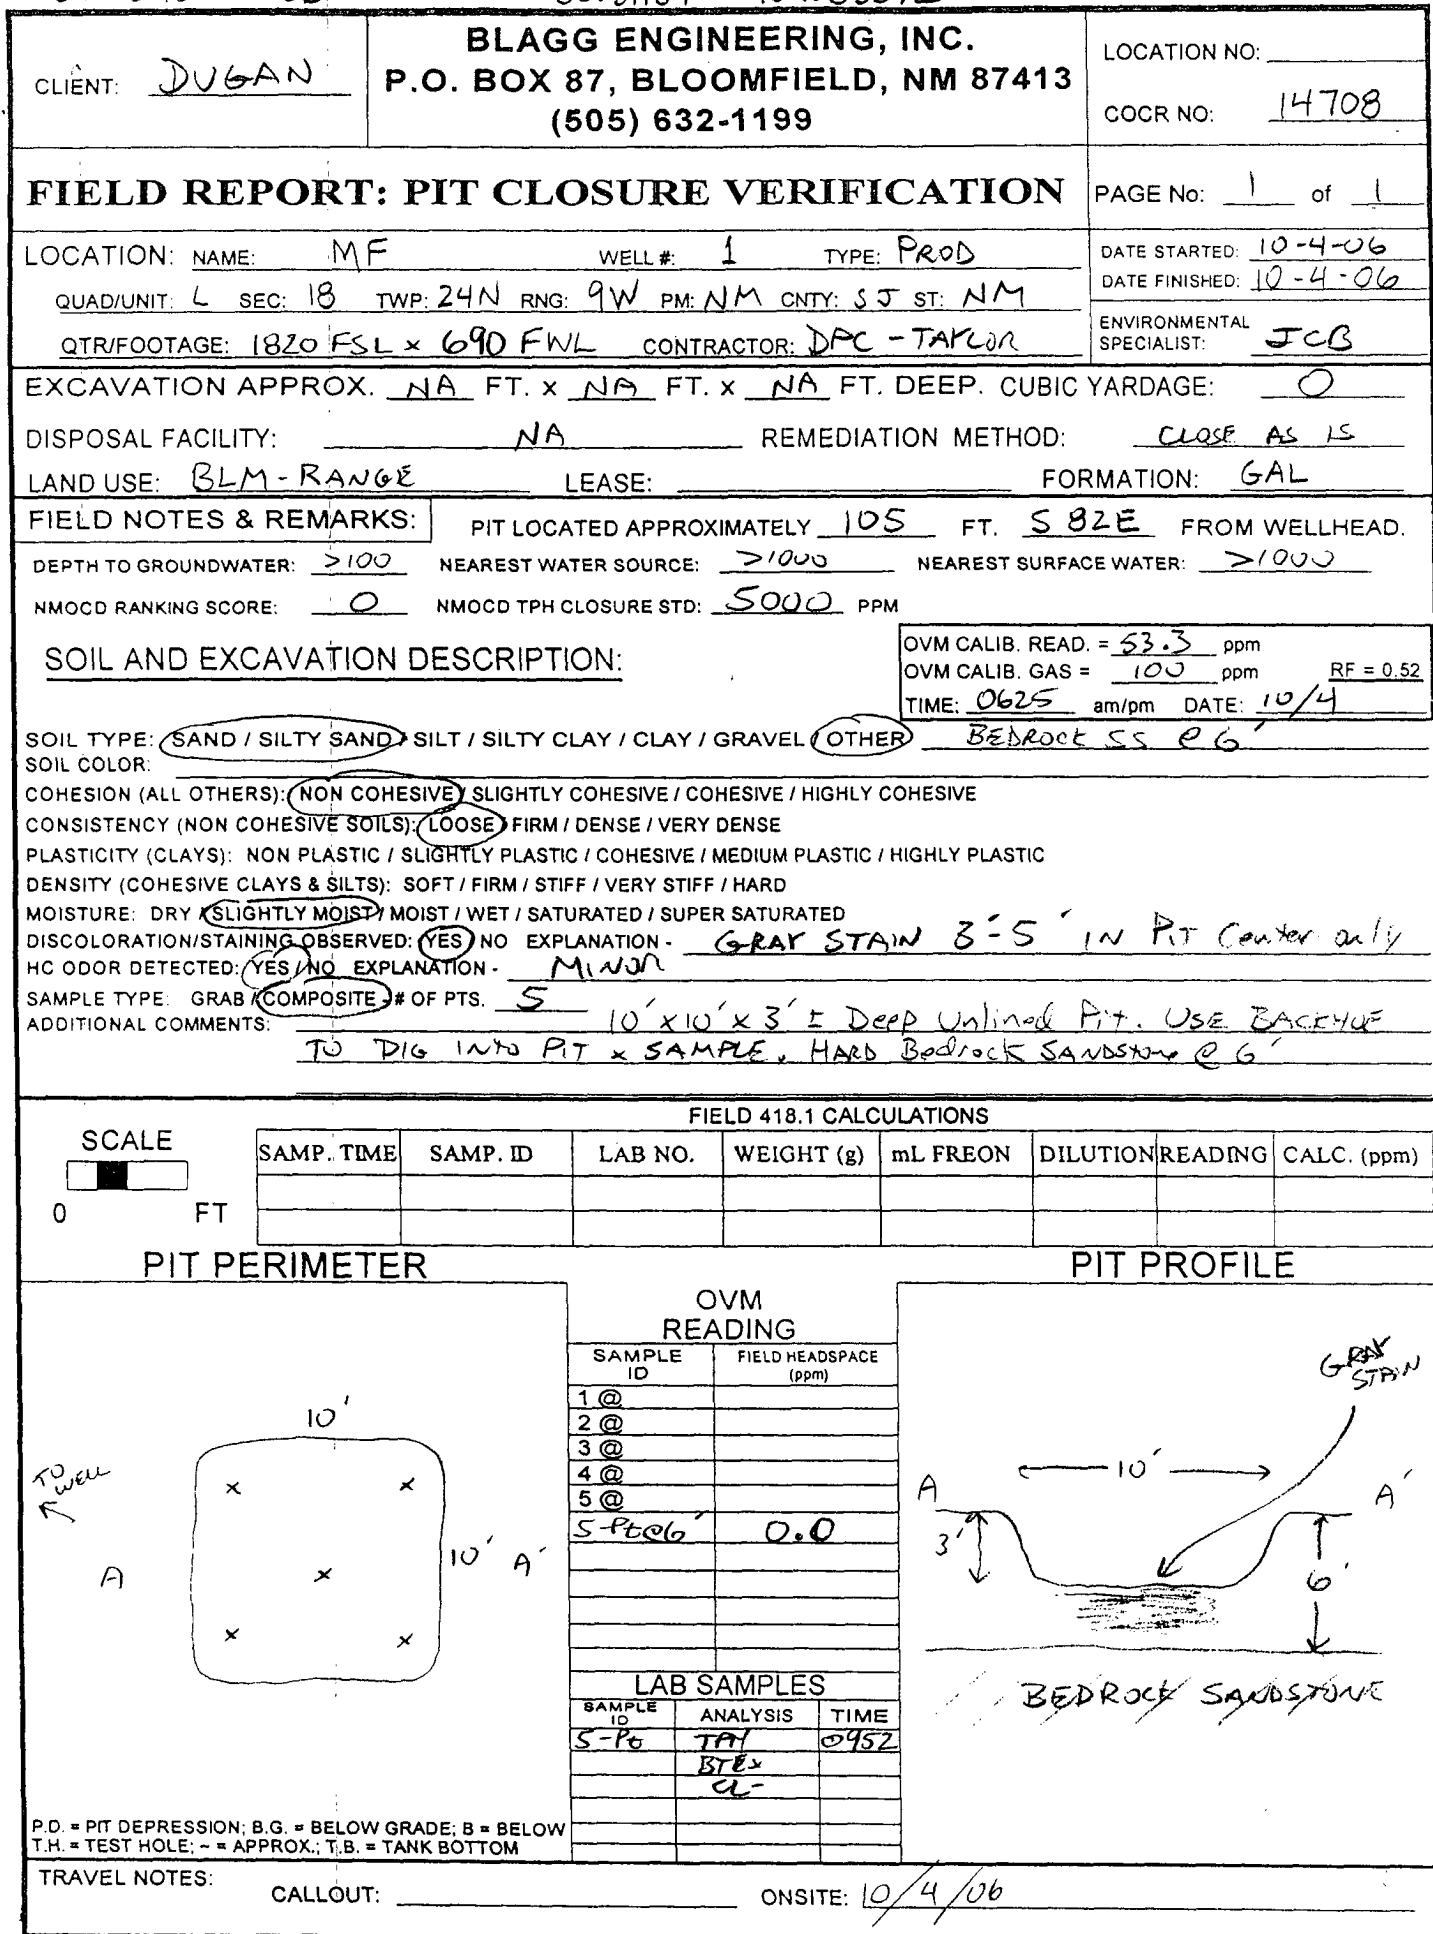 BLAGG ENGINEERING, INC.
P.O. BOX 87, BLOOMFIELD, NM 87413
(505) 632-1199
CLIENT: DUGAN
LOCATION NO:
COCR NO: 14708
FIELD REPORT: PIT CLOSURE VERIFICATION
PAGE No: 1 of 1
LOCATION: NAME: MF WELL #: 1 TYPE: PROD
DATE STARTED: 10-4-06
DATE FINISHED: 10-4-06
QUAD/UNIT: L SEC: 18 TWP: 24N RNG: 9W PM: NM CNTY: SJ ST: NM
QTR/FOOTAGE: 1820 FSL x 690 FWL CONTRACTOR: DPC - TAYLOR
ENVIRONMENTAL SPECIALIST: JCB
EXCAVATION APPROX. NA FT. x NA FT. x NA FT. DEEP. CUBIC YARDAGE: 0
DISPOSAL FACILITY: NA REMEDIATION METHOD: CLOSE AS IS
LAND USE: BLM - RANGE LEASE: FORMATION: GAL
FIELD NOTES & REMARKS: PIT LOCATED APPROXIMATELY 105 FT. S 82E FROM WELLHEAD.
DEPTH TO GROUNDWATER: >100 NEAREST WATER SOURCE: >1000 NEAREST SURFACE WATER: >1000
NMOCD RANKING SCORE: 0 NMOCD TPH CLOSURE STD: 5000 PPM
SOIL AND EXCAVATION DESCRIPTION:
OVM CALIB. READ. = 53.3 ppm
OVM CALIB. GAS = 100 ppm RF = 0.52
TIME: 0625 am/pm DATE: 10/4
SOIL TYPE: SAND / SILTY SAND / SILT / SILTY CLAY / CLAY / GRAVEL / OTHER BEDROCK SS @ 6'
SOIL COLOR:
COHESION (ALL OTHERS): NON COHESIVE / SLIGHTLY COHESIVE / COHESIVE / HIGHLY COHESIVE
CONSISTENCY (NON COHESIVE SOILS): LOOSE / FIRM / DENSE / VERY DENSE
PLASTICITY (CLAYS): NON PLASTIC / SLIGHTLY PLASTIC / COHESIVE / MEDIUM PLASTIC / HIGHLY PLASTIC
DENSITY (COHESIVE CLAYS & SILTS): SOFT / FIRM / STIFF / VERY STIFF / HARD
MOISTURE: DRY / SLIGHTLY MOIST / MOIST / WET / SATURATED / SUPER SATURATED
DISCOLORATION/STAINING OBSERVED: YES / NO EXPLANATION - GRAY STAIN 3'-5' IN PIT Center only
HC ODOR DETECTED: YES / NO EXPLANATION - MINOR
SAMPLE TYPE: GRAB / COMPOSITE - # OF PTS. 5
ADDITIONAL COMMENTS: 10' x 10' x 3' ± Deep Unlined Pit. USE BACKHOE
TO DIG INTO PIT x SAMPLE. HARD Bedrock SANDStone @ 6'
FIELD 418.1 CALCULATIONS
SCALE
0 FT
SAMP. TIME SAMP. ID LAB NO. WEIGHT (g) mL FREON DILUTION READING CALC. (ppm)
PIT PERIMETER
PIT PROFILE
OVM READING
SAMPLE ID FIELD HEADSPACE (ppm)
1 @
2 @
3 @
4 @
5 @
5-Pt@6' 0.0
10'
TO WELL
A
10'
A'
x x
x
x x
GRAY STAIN
A
10'
A'
3'
6'
BEDROCK SANDSTONE
LAB SAMPLES
SAMPLE ID ANALYSIS TIME
5-Pt TPH 0952
BTEX
CL-
P.D. = PIT DEPRESSION; B.G. = BELOW GRADE; B = BELOW
T.H. = TEST HOLE; ~ = APPROX.; T.B. = TANK BOTTOM
TRAVEL NOTES:
CALLOUT: ONSITE: 10/4/06